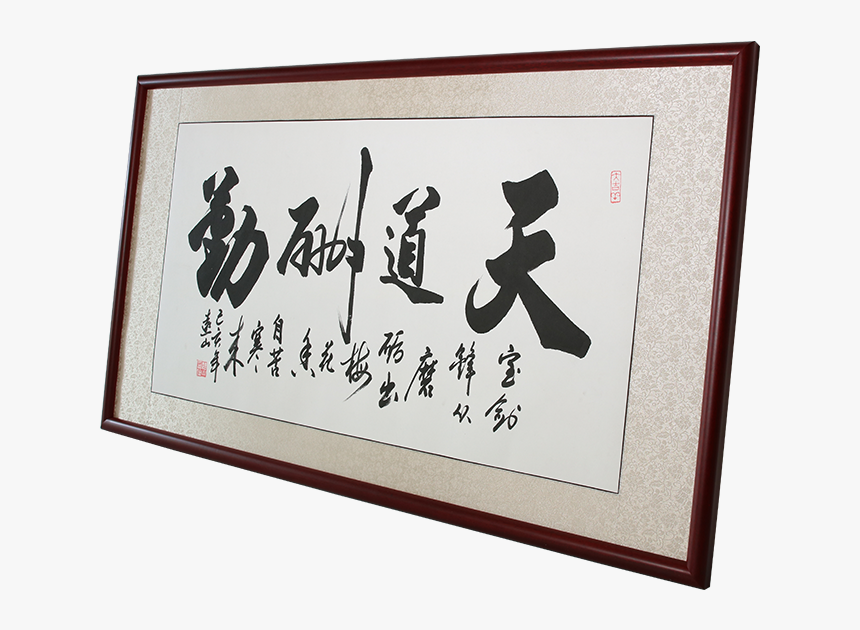 天道酬勤
宝剑
锋从
磨
砺出
梅
花
香
自苦
寒
来
己亥年
远山